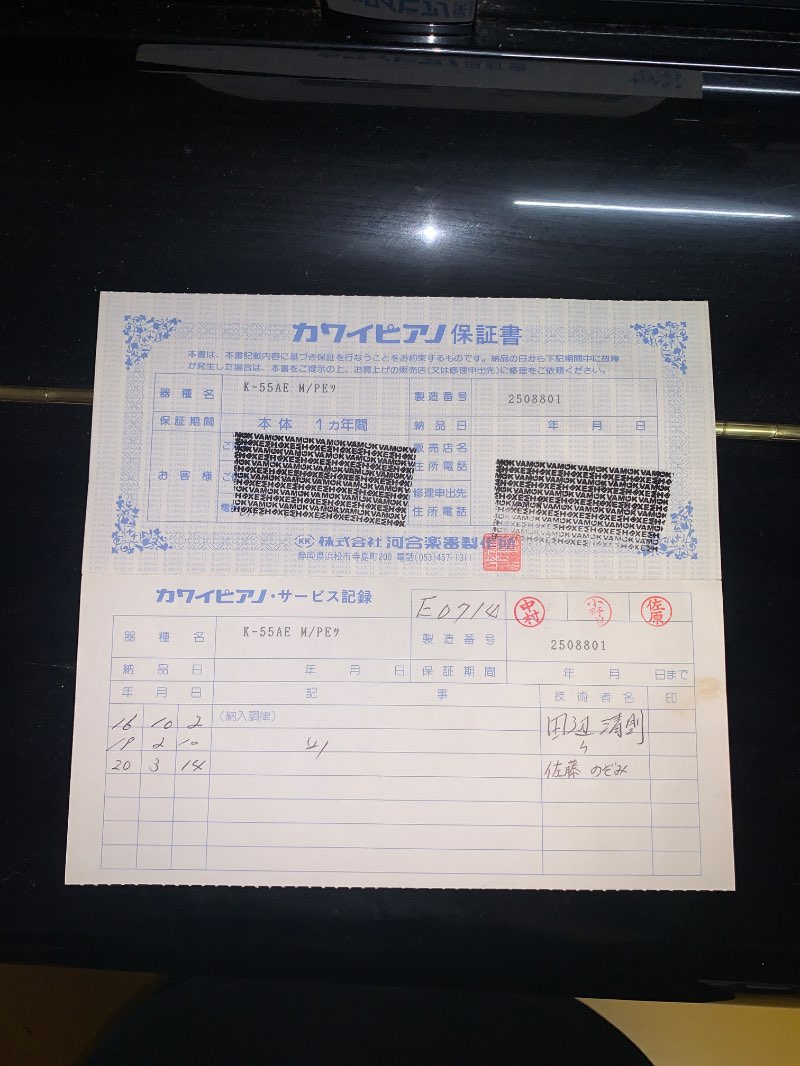 カワイピアノ 保証書
本書は、本書記載内容に基づき保証を行なうことをお約束するものです。納品の日から下記期間中に故障
が発生した場合は、本書をご提示の上、お買上げの販売店(又は修理申出先)に修理をご依頼ください。
器種名 K-55AE M/PEﾂ 製造番号 2508801
保証期間 本体 1カ年間 納品日 年 月 日
お客様
販売店名
住所電話
修理申出先
住所電話
KK 株式会社 河合楽器製作所
静岡県浜松市寺島町200 電話(053)457-1311
カワイピアノ・サービス記録 E0714 中村 佐原
器種名 K-55AE M/PEﾂ 製造番号 2508801
納品日 年 月 日 保証期間 年 月 日まで
年 月 日 記事 技術者名 印
16 10 2 (納入調律) 田辺 清則
19 2 10 〃
20 3 14 佐藤 のぞみ